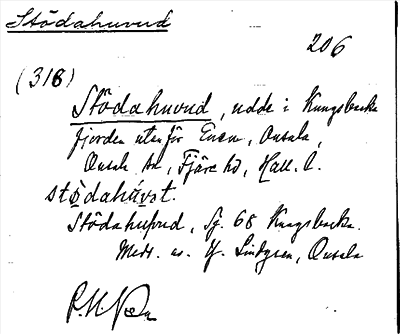 Stödahuvud
206
(318)
Stödahuvud, udde i Kungsbacka
fjorden utanför Enen, Onsala,
Onsala sn, Fjäre hd, Hall. l.
Stödahuvud, Sj. 68 Kungsbacka.
Medd. av Lindgren, Onsala